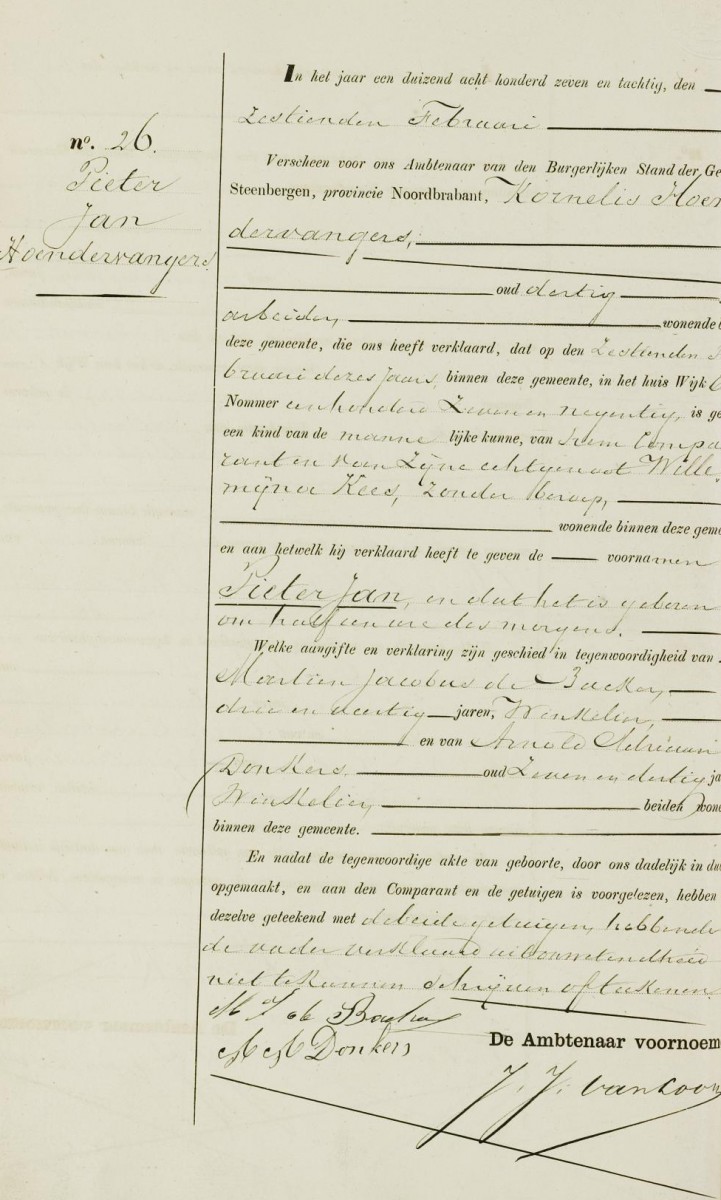 nº. 26.
Pieter
Jan
Hoendervangers
In het jaar een duizend acht honderd zeven en tachtig, den
Zestienden Februari
Verscheen voor ons Ambtenaar van den Burgerlijken Stand der Ge
Steenbergen, provincie Noordbrabant, Kornelis Hoen
dervangers,
oud dertig
arbeider, wonende b
deze gemeente, die ons heeft verklaard, dat op den Zestienden F
bruari dezes jaars, binnen deze gemeente, in het huis Wijk
Nommer een honderd Zeven en negentig, is ge
een kind van de manne lijke kunne, van hem Compa
rant en van Zijne echtgenoot Wille
mijna Kees, Zonder beroep,
wonende binnen deze geme
en aan hetwelk hij verklaard heeft te geven de voornamen
Pieter Jan, en dat het is geboren
om half een ure des morgens.
Welke aangifte en verklaring zijn geschied in tegenwoordigheid van
Martien Jacobus de Backer,
drie en veertig jaren, Winkelier,
en van Arnold Adriaan
Donkers oud Zeven en dertig ja
Winkelier, beiden wone
binnen deze gemeente.
En nadat de tegenwoordige akte van geboorte, door ons dadelijk in du
opgemaakt, en aan den Comparant en de getuigen is voorgelezen, hebben
dezelve geteekend met de beide getuigen, hebbende
de vader verklaard uit onwetendheid
niet te kunnen schrijven of teekenen.
M J de Backer
A A Donkers
De Ambtenaar voornoem
J. J. van Loon